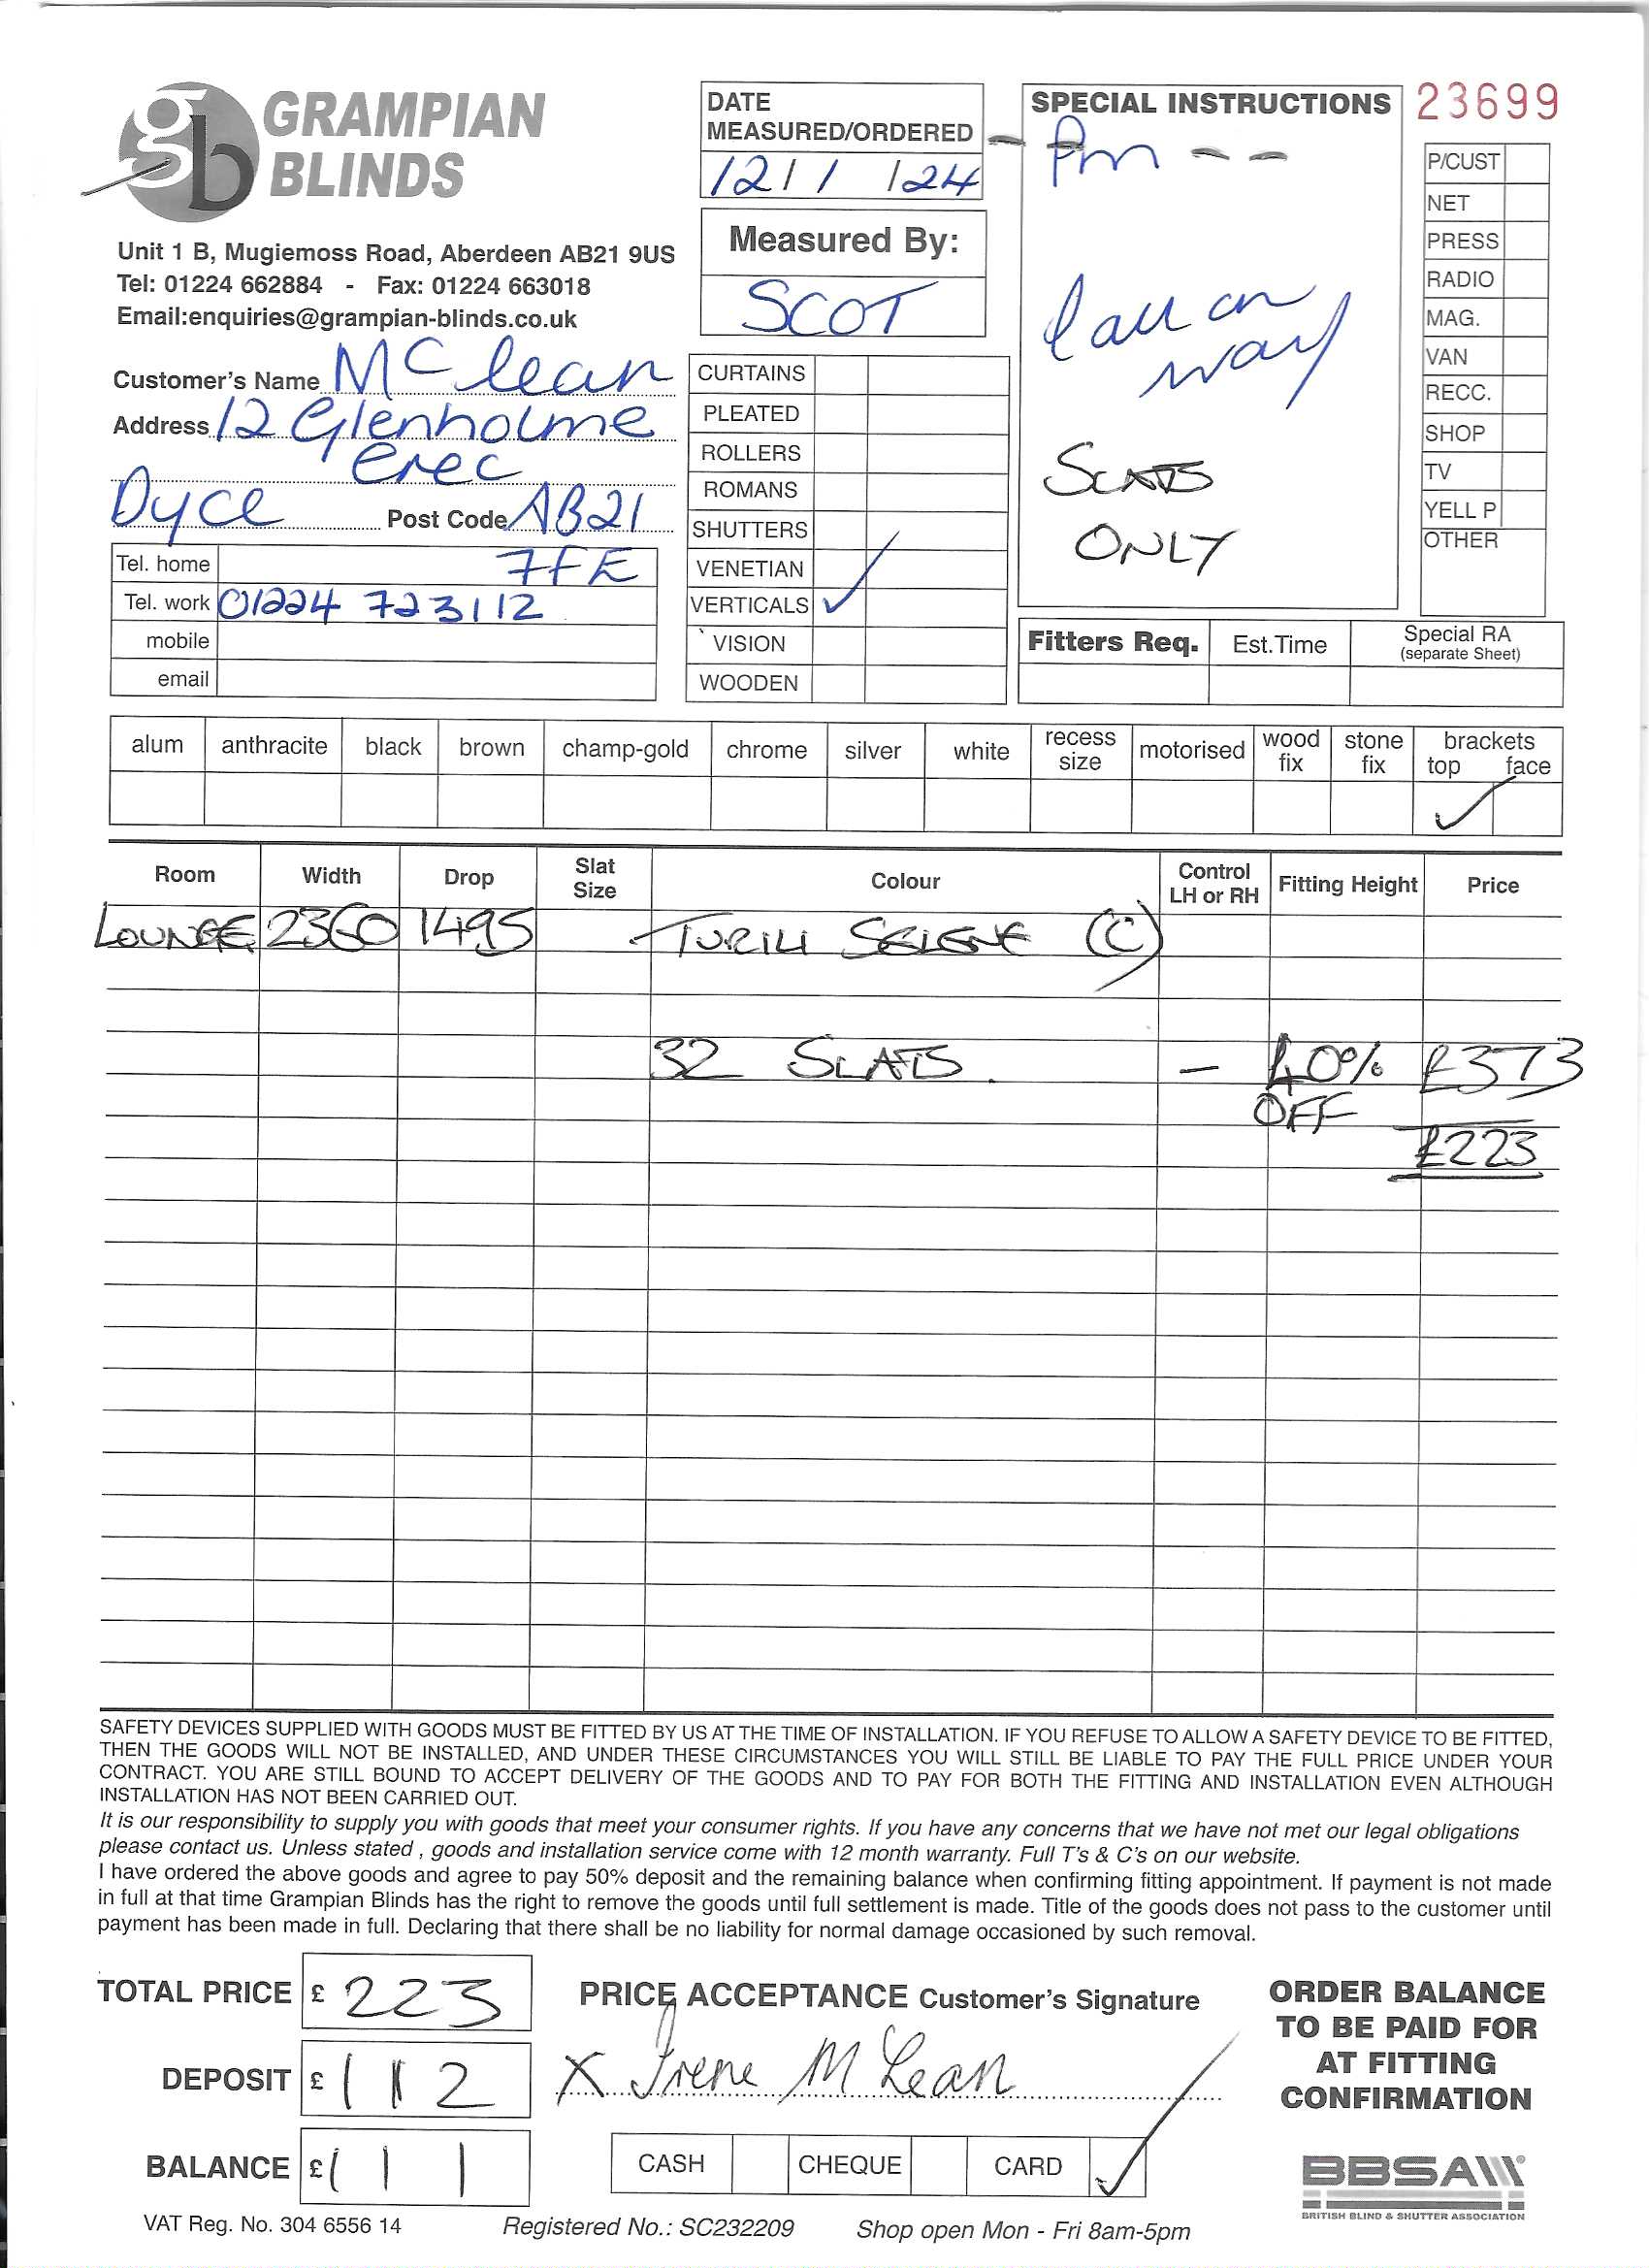 gb GRAMPIAN BLINDS
Unit 1 B, Mugiemoss Road, Aberdeen AB21 9US
Tel: 01224 662884 - Fax: 01224 663018
Email:enquiries@grampian-blinds.co.uk
Customer's Name Mc lean
Address 12 Glenholme
Crec
Dyce Post Code AB21
Tel. home 7FE
Tel. work 01224 723112
mobile
email
DATE
MEASURED/ORDERED
12/1/24
Measured By:
SCOT
CURTAINS
PLEATED
ROLLERS
ROMANS
SHUTTERS
VENETIAN
VERTICALS ✓
VISION
WOODEN
SPECIAL INSTRUCTIONS
- Pm - -
Call on
way
SLATS
ONLY
23699
P/CUST
NET
PRESS
RADIO
MAG.
VAN
RECC.
SHOP
TV
YELL P
OTHER
Fitters Req. Est.Time Special RA
(separate Sheet)
alum anthracite black brown champ-gold chrome silver white recess size motorised wood fix stone fix brackets top face
✓
Room Width Drop Slat Size Colour Control LH or RH Fitting Height Price
LOUNGE 2360 1495 SELENE (C)
32 SLATS - 40% £373
OFF
£223
SAFETY DEVICES SUPPLIED WITH GOODS MUST BE FITTED BY US AT THE TIME OF INSTALLATION. IF YOU REFUSE TO ALLOW A SAFETY DEVICE TO BE FITTED,
THEN THE GOODS WILL NOT BE INSTALLED, AND UNDER THESE CIRCUMSTANCES YOU WILL STILL BE LIABLE TO PAY THE FULL PRICE UNDER YOUR
CONTRACT. YOU ARE STILL BOUND TO ACCEPT DELIVERY OF THE GOODS AND TO PAY FOR BOTH THE FITTING AND INSTALLATION EVEN ALTHOUGH
INSTALLATION HAS NOT BEEN CARRIED OUT.
It is our responsibility to supply you with goods that meet your consumer rights. If you have any concerns that we have not met our legal obligations
please contact us. Unless stated , goods and installation service come with 12 month warranty. Full T's & C's on our website.
I have ordered the above goods and agree to pay 50% deposit and the remaining balance when confirming fitting appointment. If payment is not made
in full at that time Grampian Blinds has the right to remove the goods until full settlement is made. Title of the goods does not pass to the customer until
payment has been made in full. Declaring that there shall be no liability for normal damage occasioned by such removal.
TOTAL PRICE £ 223
DEPOSIT £ 112
BALANCE £ 111
PRICE ACCEPTANCE Customer's Signature
X Irene McLean
CASH CHEQUE CARD ✓
ORDER BALANCE
TO BE PAID FOR
AT FITTING
CONFIRMATION
BBSA
BRITISH BLIND & SHUTTER ASSOCIATION
VAT Reg. No. 304 6556 14 Registered No.: SC232209 Shop open Mon - Fri 8am-5pm